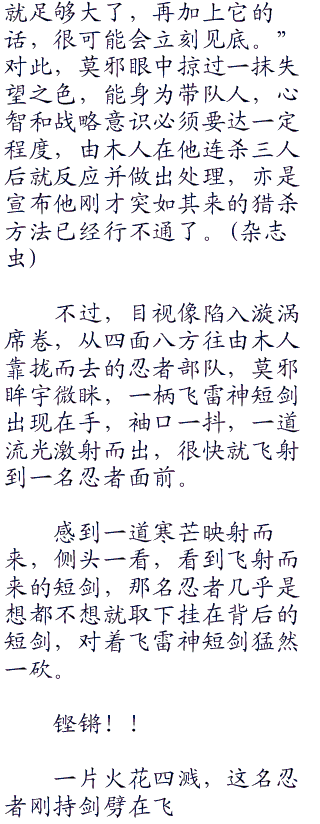 就足够大了，再加上它的
话，很可能会立刻见底。”
对此，莫邪眼中掠过一抹失
望之色，能身为带队人，心
智和战略意识必须要达一定
程度，由木人在他连杀三人
后就反应并做出处理，亦是
宣布他刚才突如其来的猎杀
方法已经行不通了。(杂志
虫)
不过，目视像陷入漩涡
席卷，从四面八方往由木人
靠拢而去的忍者部队，莫邪
眸宇微眯，一柄飞雷神短剑
出现在手，袖口一抖，一道
流光激射而出，很快就飞射
到一名忍者面前。
感到一道寒芒映射而
来，侧头一看，看到飞射而
来的短剑，那名忍者几乎是
想都不想就取下挂在背后的
短剑，对着飞雷神短剑猛然
一砍。
铿锵！！
一片火花四溅，这名忍
者刚持剑劈在飞